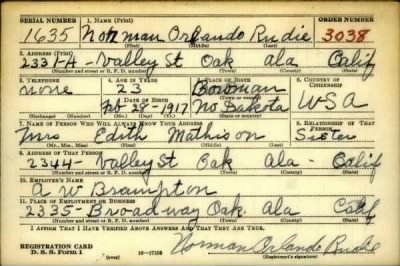 SERIAL NUMBER 1. NAME (Print) ORDER NUMBER
1635 Norman Orlando Rudie 3038
(First) (Middle) (Last)
2. ADDRESS (Print)
2331-A - Valley St Oak Ala Calif
(Number and street or R. F. D. number) (Town) (County) (State)
3. TELEPHONE 4. AGE IN YEARS 5. PLACE OF BIRTH 6. COUNTRY OF CITIZENSHIP
none 23 Bowman
DATE OF BIRTH (Town or county)
Feb 28-1917 No Dakota USA
(Mo.) (Day) (Yr.) (State or country)
7. NAME OF PERSON WHO WILL ALWAYS KNOW YOUR ADDRESS 8. RELATIONSHIP OF THAT PERSON
Mrs Edith Mathison Sister
(Mr., Mrs., Miss) (First) (Middle) (Last)
9. ADDRESS OF THAT PERSON
2344 - Valley St Oak Ala - Calif
(Number and street or R. F. D. number) (Town) (County) (State)
10. EMPLOYER'S NAME
A W Brampton
11. PLACE OF EMPLOYMENT OR BUSINESS
2335 - Broadway Oak. Ala Calif
(Number and street or R. F. D. number) (Town) (County) (State)
I AFFIRM THAT I HAVE VERIFIED ABOVE ANSWERS AND THAT THEY ARE TRUE.
REGISTRATION CARD
D. S. S. Form 1 (over) 16-17105 Norman Orlando Rudie
(Registrant's signature)